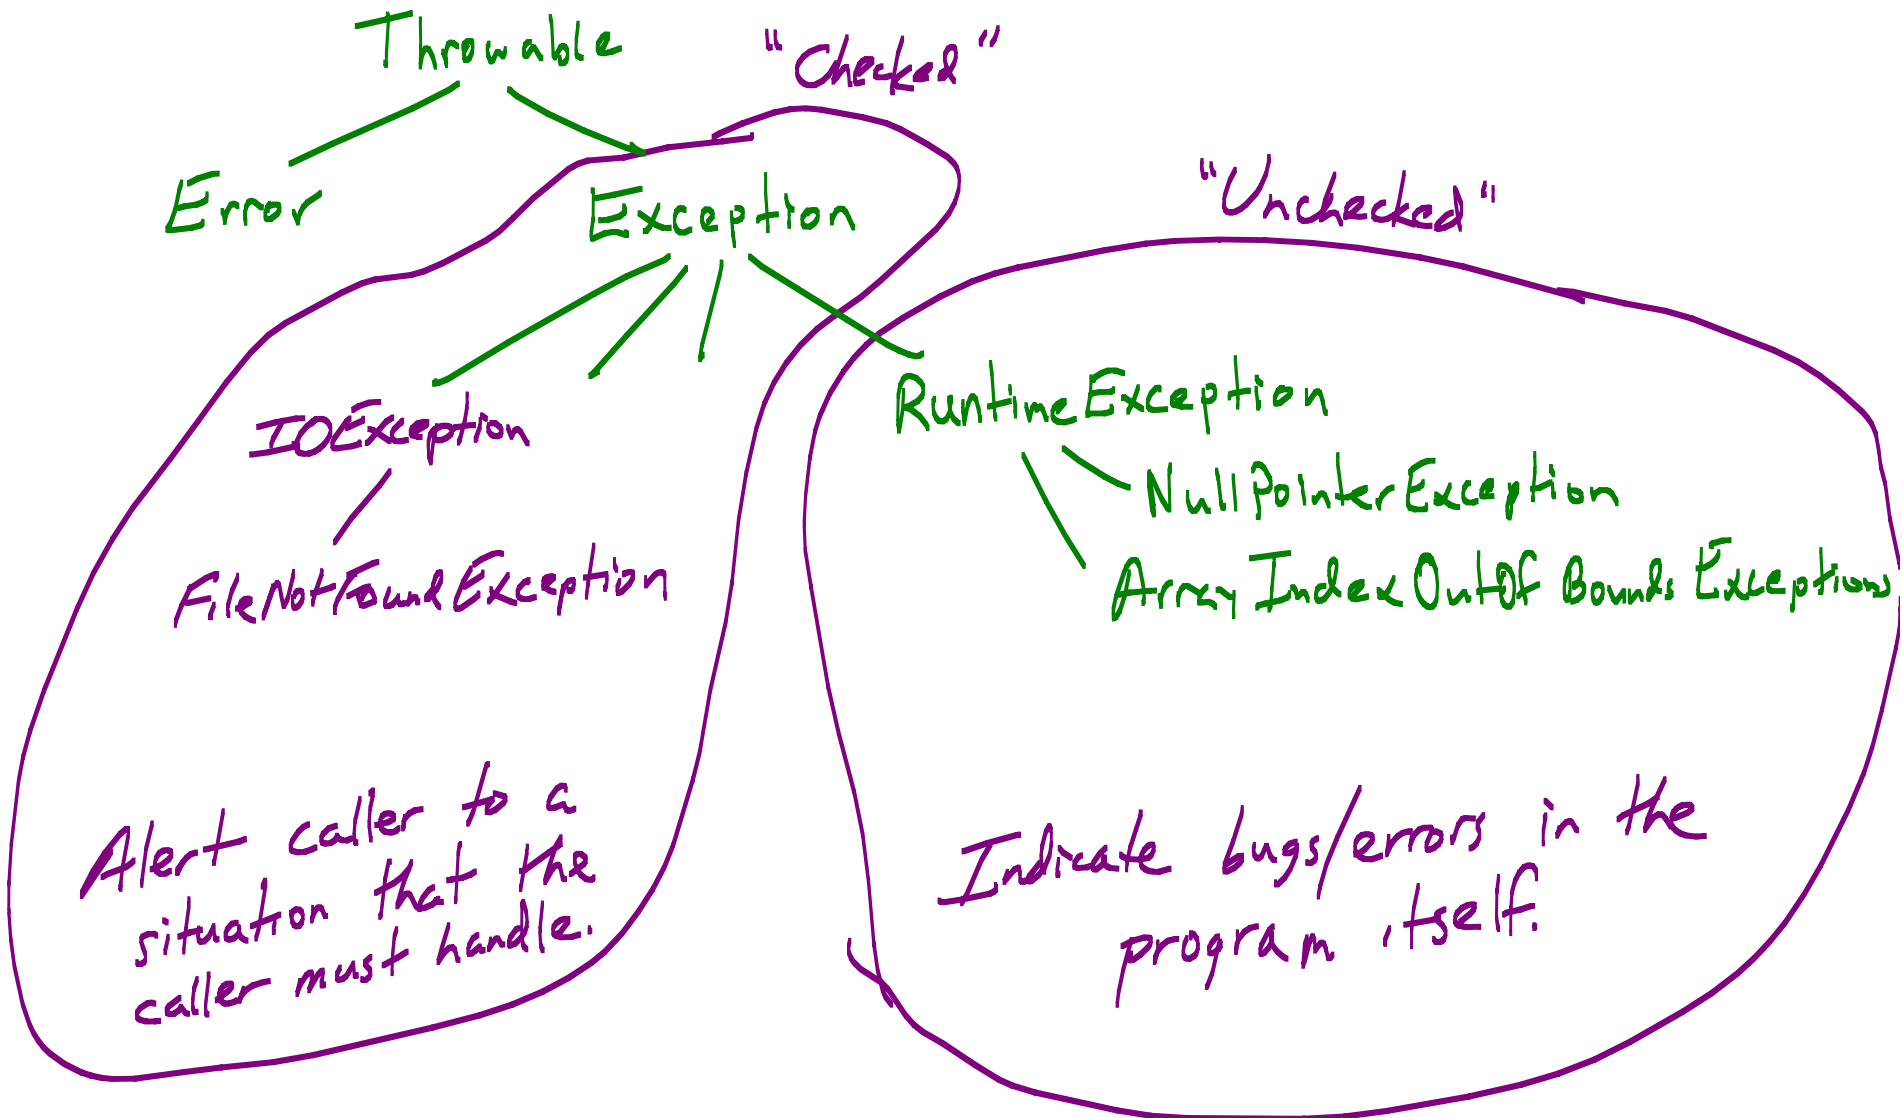 Throwable
"Checked"
Error
Exception
"Unchecked"
IOException
RuntimeException
NullPointerException
FileNotFoundException
ArrayIndexOutOf Bounds Exceptions
Alert caller to a
situation that the
caller must handle.
Indicate bugs/errors in the
program itself.